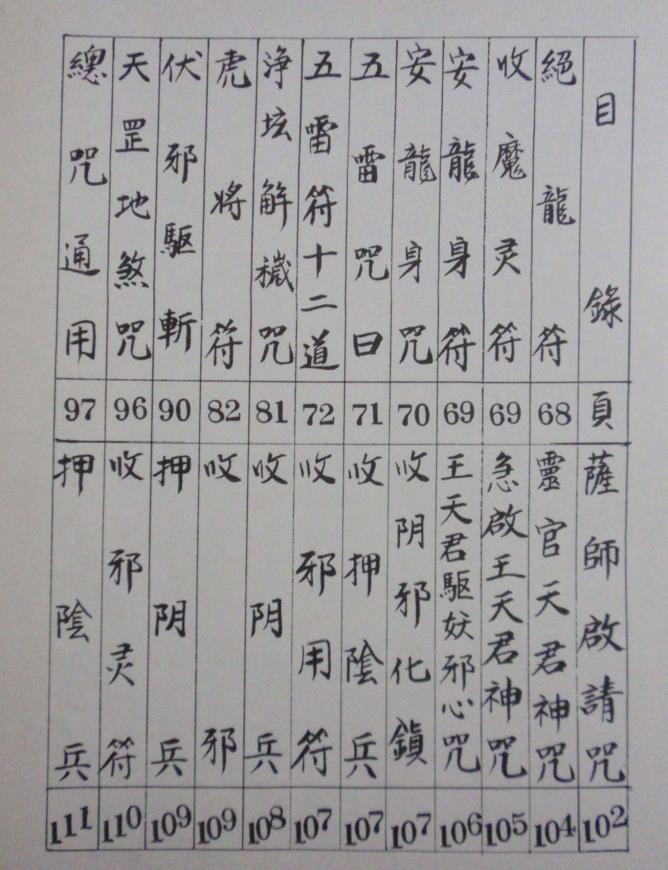 目錄 頁
絕龍符 68
收魔灵符 69
安龍身符 69
安龍身咒 70
五雷咒曰 71
五雷符十二道 72
淨坛解穢咒 81
虎將符 82
伏邪驅斬 90
天罡地煞咒 96
總咒通用 97
薩師啟請咒 102
靈官天君神咒 104
急啟王天君神咒 105
王天君驅妖邪心咒 106
收阴邪化鎖 107
收押陰兵 107
收邪用符 107
收阴兵 108
收邪 109
押阴兵 109
收邪灵符 110
押陰兵 111